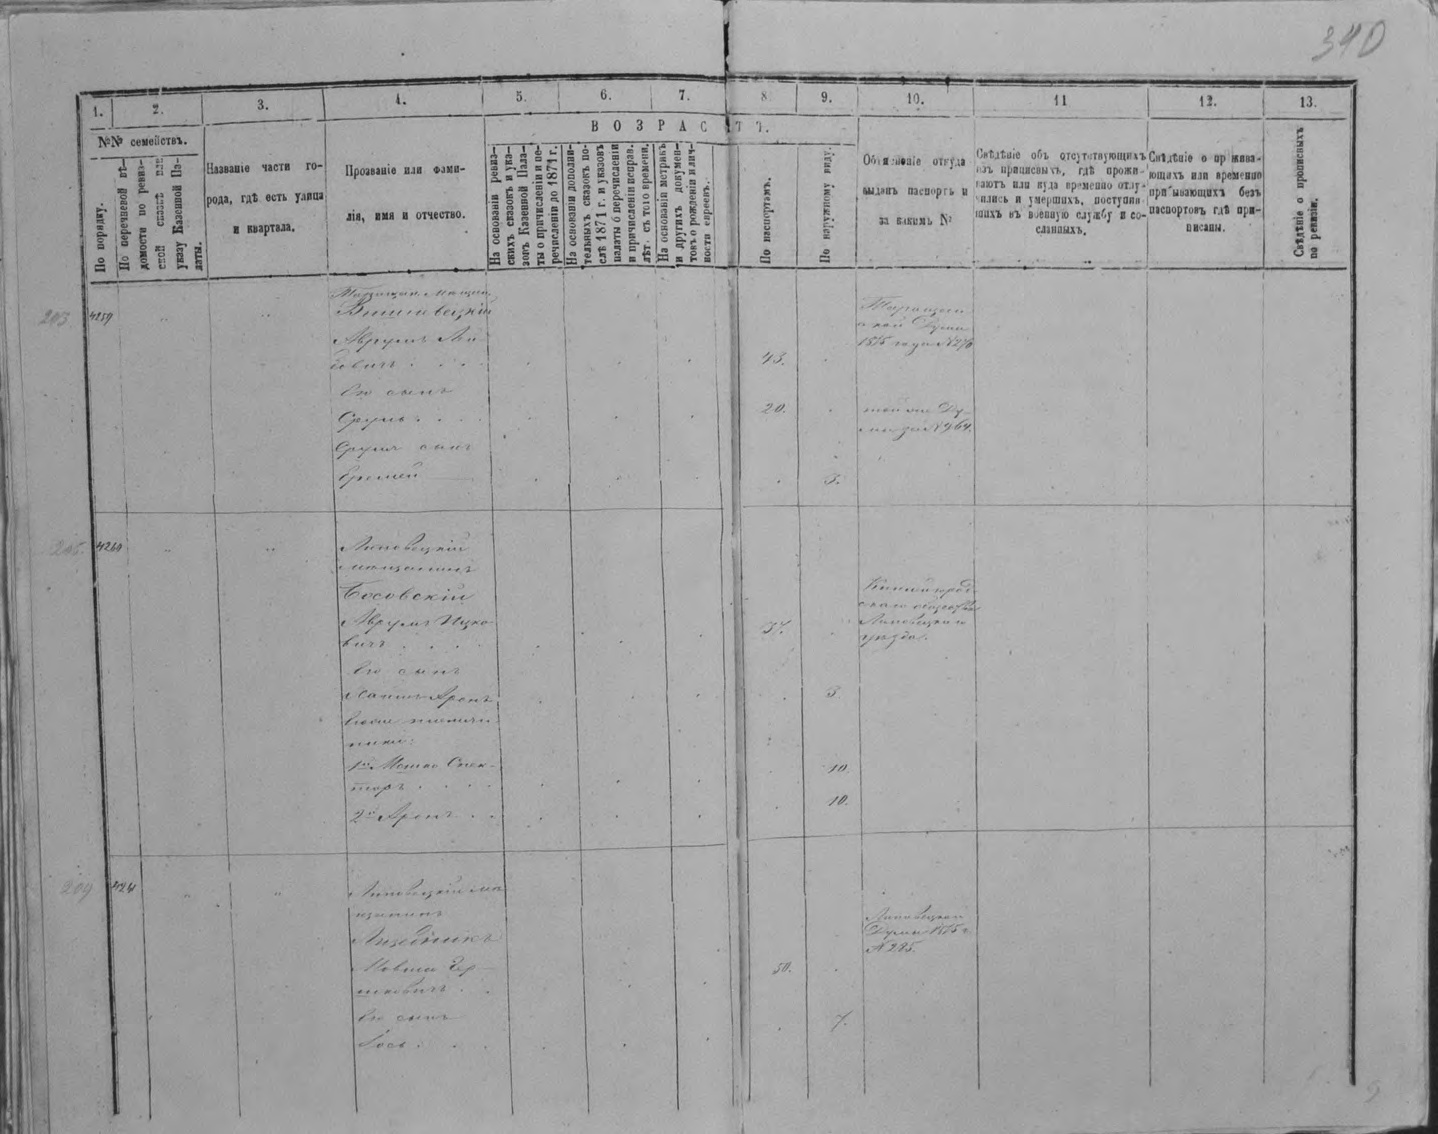 340
1.
2.
3.
4.
5.
6.
7.
8.
9.
10.
11
12.
13.
№№ семействъ.
ВОЗРАСТЪ.
По порядку.
По перечневой вѣ-
домости по ревиз-
ской сказкѣ или
указу Казенной Па-
латы.
Названіе части го-
рода, гдѣ есть улица
и квартала.
Прозваніе или фами-
лія, имя и отчество.
На основаніи ревиз-
скихъ сказокъ и ука-
зовъ Казенной Пала-
ты о причисленіи и пе-
речисленіи до 1871 г.
На основаніи дополни-
тельныхъ сказокъ по-
слѣ 1871 г. и указовъ
палаты о перечисленіи
и причисленіи исправ.
лѣт. съ того времени.
На основаніи метрикъ
и другихъ докумен-
товъ о рожденіи и лич-
ности евреевъ.
По паспортамъ.
По наружному виду.
Объясненіе откуда
выданъ паспортъ и
за какимъ №
Свѣдѣніе объ отсутствующихъ
изъ приписныхъ, гдѣ прожи-
ваютъ или куда временно отлу-
чились и умершихъ, поступив-
шихъ въ военную службу и со-
сланныхъ.
Свѣдѣніе о прожива-
ющихъ или временно
прибывающихъ безъ
паспортовъ гдѣ при-
писаны.
Свѣдѣніе о прописныхъ
по ревизіи.
203
4259
Вишневецкій
Аврумъ Лей
бовичъ
43.
его сынъ
Сруль
20.
Сруля сынъ
3.
4260
Липовецкій
мѣщанинъ
Босовскій
Аврумъ Ицко-
вичъ
37.
Липовецкаго
уѣзда.
его сынъ
Аронъ
3.
1й Мошко Спек-
торъ
10.
2й Аронъ
10.
209
Липовецкій мѣ
щанинъ
Мовша Гер-
шковичъ
50.
Липовецкой
Думы 1875 г
№ 285.
его сынъ
Іось
7.